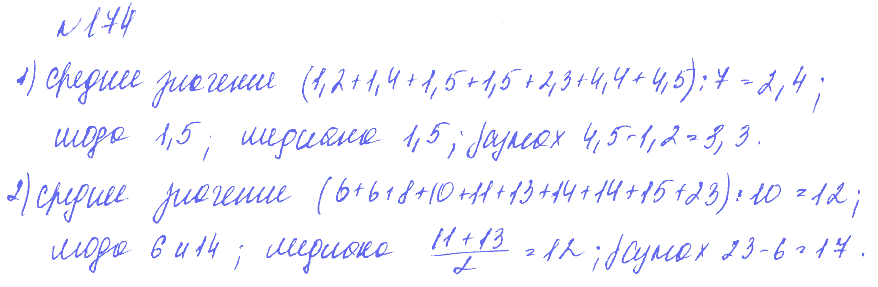 №174
1) среднее значение (1,2+1,4+1,5+1,5+2,3+4,4+4,5):7=2,4;
мода 1,5; медиана 1,5; размах 4,5-1,2=3,3.
2) среднее значение (6+6+8+10+11+13+14+14+15+23):10=12;
мода 6 и 14; медиана \frac{11+13}{2}=12; размах 23-6=17.